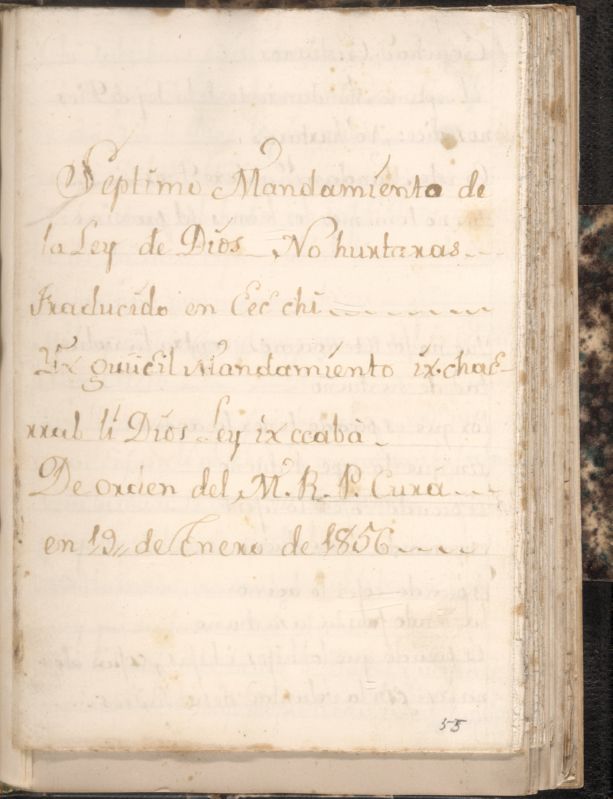 Septimo Mandamiento de
la Ley de Dios No hurtaras
Traducido en Cec chi
Ix guüc il Mandamiento ix.chac-
rrab li Dios Ley ix ccaba
De orden del M. R. P. Cura
en 19,, de Enero de 1856
55